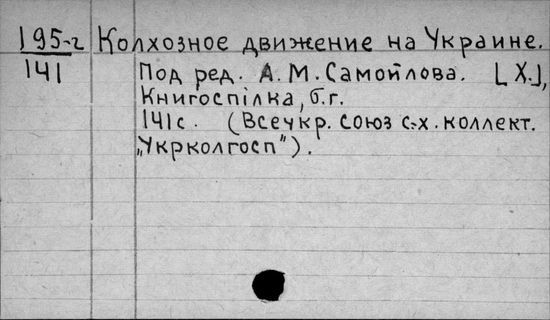 195-г Колхозное движение на Украине.
141 Под ред. А.М.Самойлова. [Х.],
Книгоспілка, б.г.
141с. (Всеукр. союз с.-х. коллект.
„Укрколгосп").